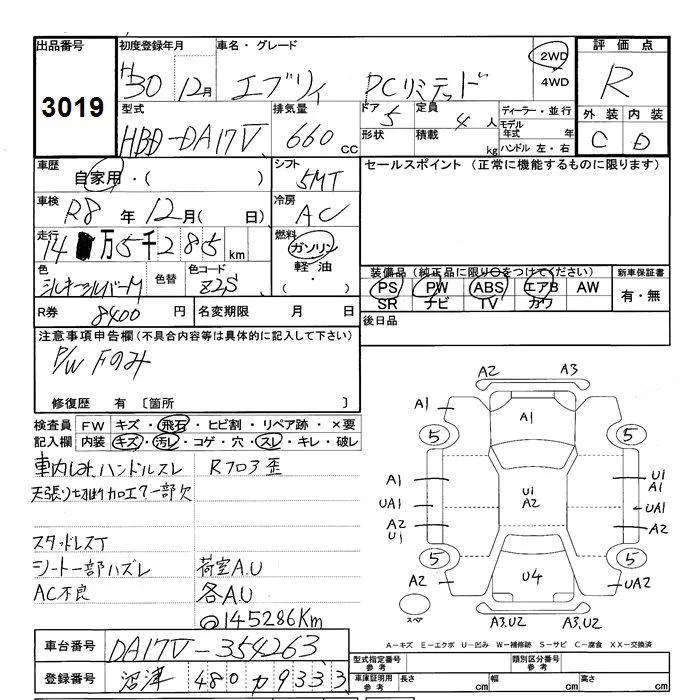 出品番号 初度登録年月 車名・グレード 2WD 評価点
3019 H30 12月 エブリィ PCリミテッド 4WD R
型式 排気量 ドア 定員 ディーラー・並行 外装 内装
HBD-DA17V 660 cc 5 4人 モデル年式 年 C D
形状 積載 kg ハンドル 左・右
車歴 シフト セールスポイント (正常に機能するものに限ります)
自家用・( ) 5MT
車検 冷房
R8年 12月( 日) AC
走行 燃料
14万5千285km ガソリン
軽油
( ・ )
色 色替 色コード 装備品 (純正品に限り○をつけてください) 新車保証書
シルキーシルバーM Z2S PS PW ABS エアB AW 有・無
SR ナビ TV カワ
R券 8400円 名変期限 月 日 後日品
注意事項申告欄(不具合内容等は具体的に記入して下さい)
P/W Fのみ
修復歴 有 〔箇所 〕
検査員 FW キズ・飛石・ヒビ割・リペア跡・×要
記入欄 内装 キズ・汚レ・コゲ・穴・スレ・キレ・破レ
車内しみ、ハンドルスレ Rフロア歪
天張り切れ 加工ケ一部欠
スタッドレスT
シート一部ハズレ 荷室A.U
AC不良 各AU
◎145286Km
A2 A3
A1 A1 A1
5 5
A1 U1 U1
A2 A1
UA1 UA1
A2 A2
U1
5 5
A2 U4 UA2
スペア A3.U2 A3.U2
A-キズ E-エクボ U-凹み W-補修跡 S-サビ C-腐食 XX-交換済
車台番号 DA17V-354263 型式指定番号 参考 類別区分番号 参考
登録番号 沼津 480 カ 9333 車庫証明用 参考 長さ cm 幅 cm 高さ cm